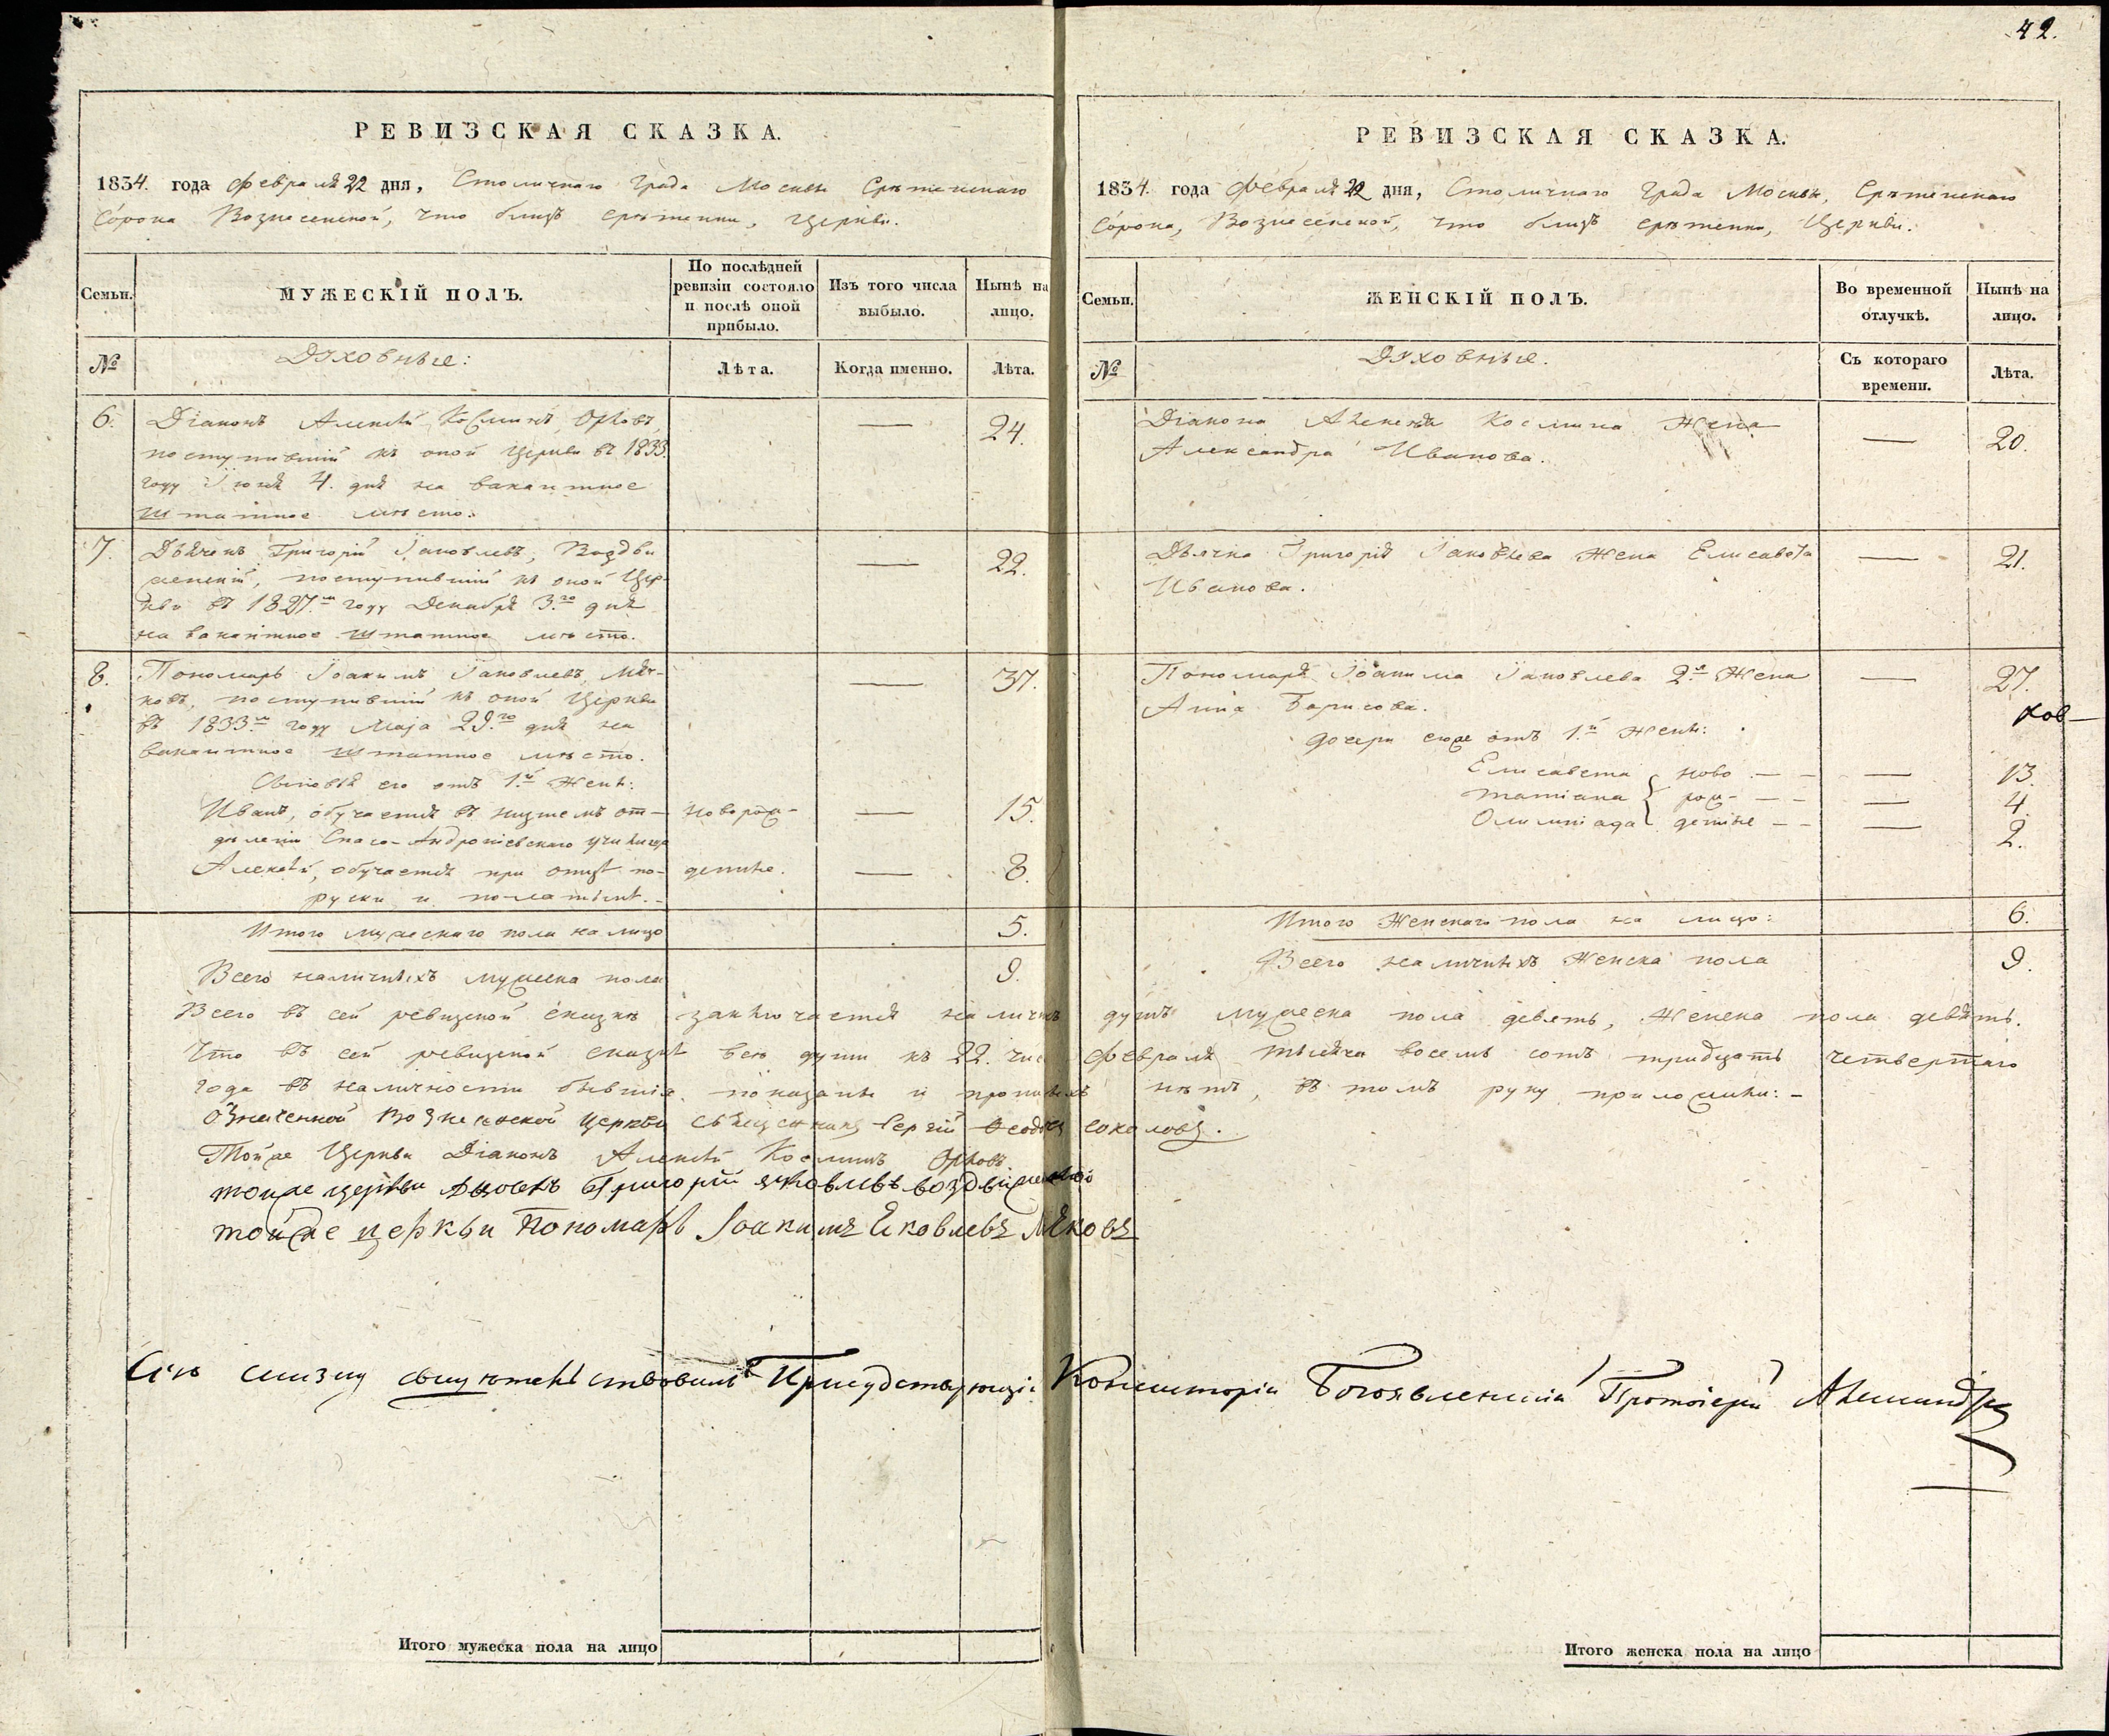 42.
РЕВИЗСКАЯ СКАЗКА.
1834. года Февраля 22 дня, Столичнаго Града Москвы Срѣтенскаго
Сорока Вознесенской, что близъ срѣтенки, Церкви.
Семьи.
МУЖЕСКІЙ ПОЛЪ.
По послѣдней
ревизіи состояло
и послѣ оной
прибыло.
Изъ того числа
выбыло.
Нынѣ на
лицо.
№
Духовные:
Лѣта.
Когда именно.
Лѣта.
6. Діаконъ Алексѣй Косминъ — 24.
поступившій къ оной Церкви въ 1833.
году Іюня 4. дня на вакантное
штатное мѣсто.
7. Дьячекъ Григорій Іаковлевъ, Воздви — 22.
женскій, поступившій къ оной Цер-
кви въ 1827.м году Декабря 3.го дня
на вакантное штатное мѣсто.
8. Пономарь Іоакимъ Іаковлевъ, — 37.
ковъ, поступившій къ оной Церкви
въ 1833м году Маія 29.го дня на
вакантное штатное мѣсто.
Сыновья его отъ 1.й Жены:
Иванъ, обучается въ низшемъ от- новорож- — 15.
дѣленіи Спасо-Андроніевскаго училища
Алексѣй, обучается при отцѣ по- денные. — 8.
руски и полатынѣ.
Итого мужескаго пола на лицо 5.
Всего наличныхъ мужеска пола 9.
РЕВИЗСКАЯ СКАЗКА.
1834. года Февраля 22 дня, Столичнаго Града Москвы, Срѣтенскаго
Сорока, Вознесенской, что близъ срѣтенки, Церкви.
Семьи.
ЖЕНСКІЙ ПОЛЪ.
Во временной
отлучкѣ.
Нынѣ на
лицо.
№
Духовные.
Съ котораго
времени.
Лѣта.
Діакона Алексѣя Космина Жена — 20.
Александра Иванова.
Дьячка Григорія Іаковлева Жена Елисавета — 21.
Иванова.
Пономаря Іоакима Іаковлева 2.я Жена — 27.
Анна Борисова.
ков—
дочери его же отъ 1.й Жены:
Елисавета ново — — — 13.
Татіана рож- — — — 4.
Олимпіада денные — — — 2.
Итого Женскаго пола на лицо: 6.
Всего наличныхъ Женска пола 9.
Всего въ сей ревизской сказкѣ заключается наличныхъ душъ мужеска пола девять, Женска пола девять.
Что въ сей ревизской сказкѣ всѣ души къ 22. числу Февраля тысяча восемь сотъ тридцать четвертаго
года въ наличности бывшія, показаны и прописныхъ нѣтъ, въ томъ руку приложили: -
Означенной Вознесенской Церкви Священникъ Сергій Соколовъ.
Тойже Церкви Діаконъ Алексѣй Косминъ
тойже церкви Григорій Яковлевъ Воздвиженской
тойже церкви Пономарь Іоакимъ Яковлевъ
Сію сказку свидѣтельствовалъ Присудствующій Консисторіи Богоявленскій Протоіерей Александръ
Итого мужеска пола на лицо
Итого женска пола на лицо